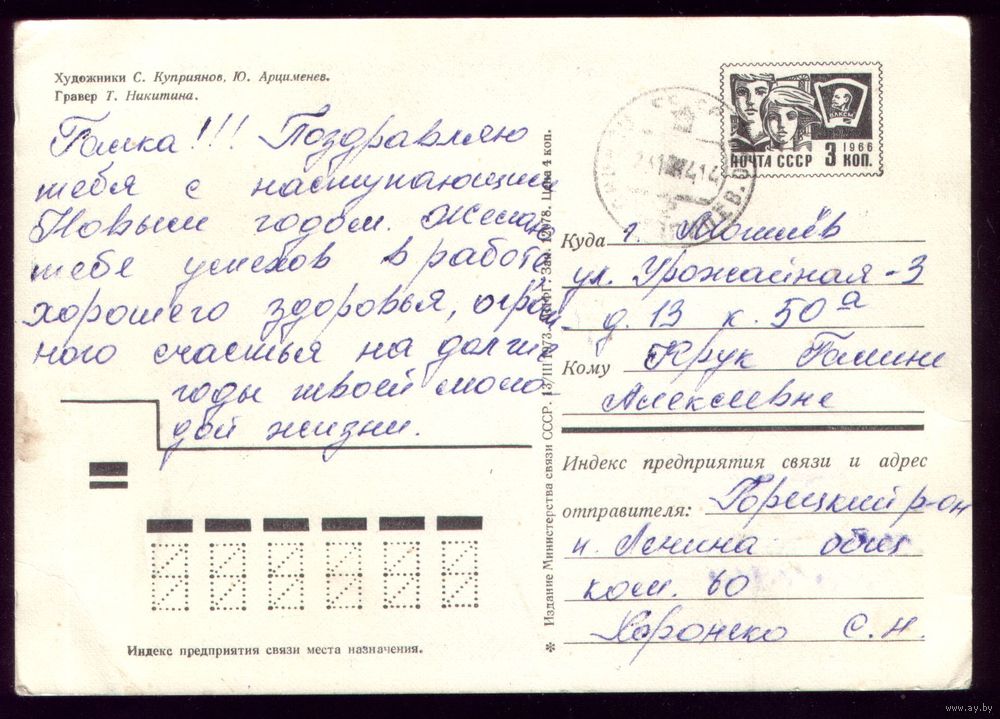 Художники С. Куприянов, Ю. Арцименев.
Гравер Т. Никитина.
Галка!!! Поздравляю
тебя с наступающим
Новым годом. Желаю
тебе успехов в работе
хорошего здоровья, огром
ного счастья на долгие
годы твоей моло
дой жизни.
Индекс предприятия связи места назначения.
* Издание Министерства связи СССР. 13/III 1973. Зак. 12078. Цена 4 коп.
ВЛКСМ
1966
ПОЧТА СССР 3 КОП.
Куда г. Могилёв
ул. Урожайная - 3
д. 13 к. 50а
Кому Крук Галине
Алексеевне
Индекс предприятия связи и адрес
отправителя: Горецкий р-он
п. Ленина общ
ком. 60
С. Н.
www.ay.by